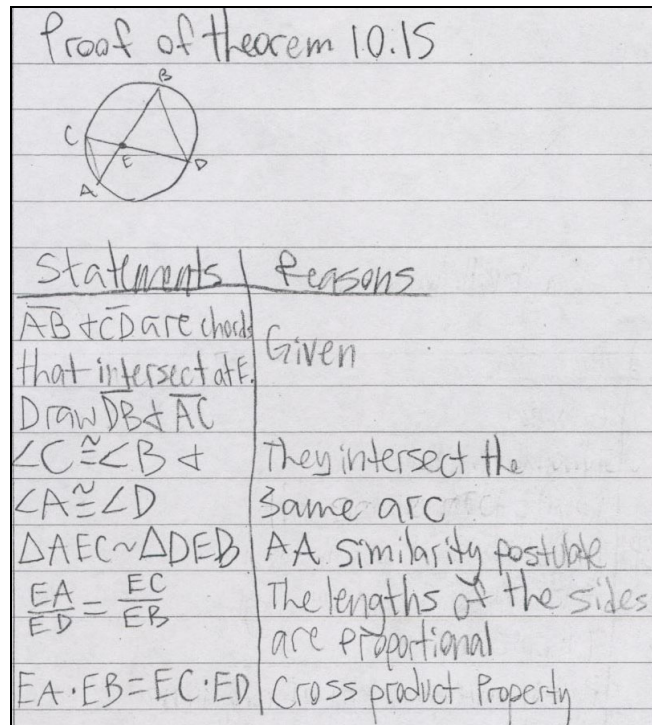 Proof of theorem 10.15
B
C
E
D
A
Statements Reasons
AB & CD are chords
that intersect at E.
Given
Draw DB & AC
∠C≅∠B & They intersect the
∠A≅∠D same arc
△AEC~△DEB AA Similarity postulate
EA/ED = EC/EB The lengths of the sides
are proportional
EA·EB=EC·ED Cross product Property